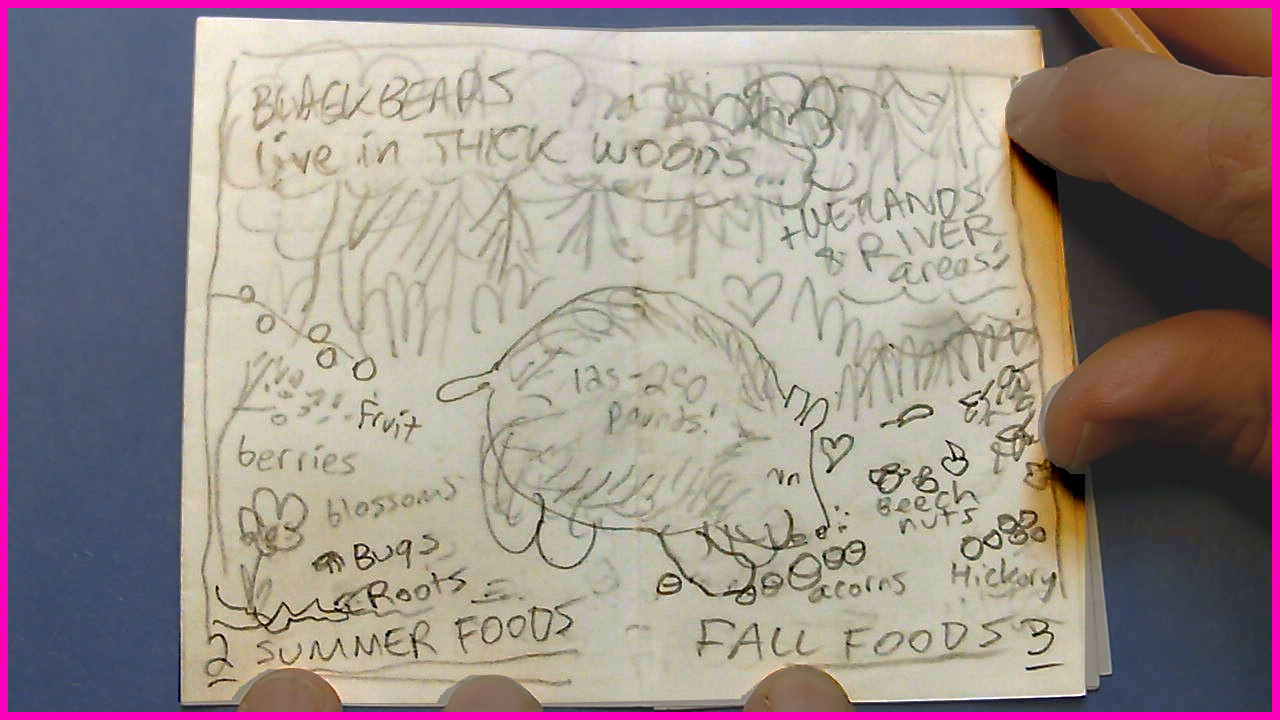 BLACK BEARS
live in THICK WOODS...
+ WETLANDS
& RIVER
areas!
125-250
pounds!
fruit
berries
blossoms
Bugs
Roots
Beech
nuts
acorns
Hickory
2 SUMMER FOODS
FALL FOODS 3